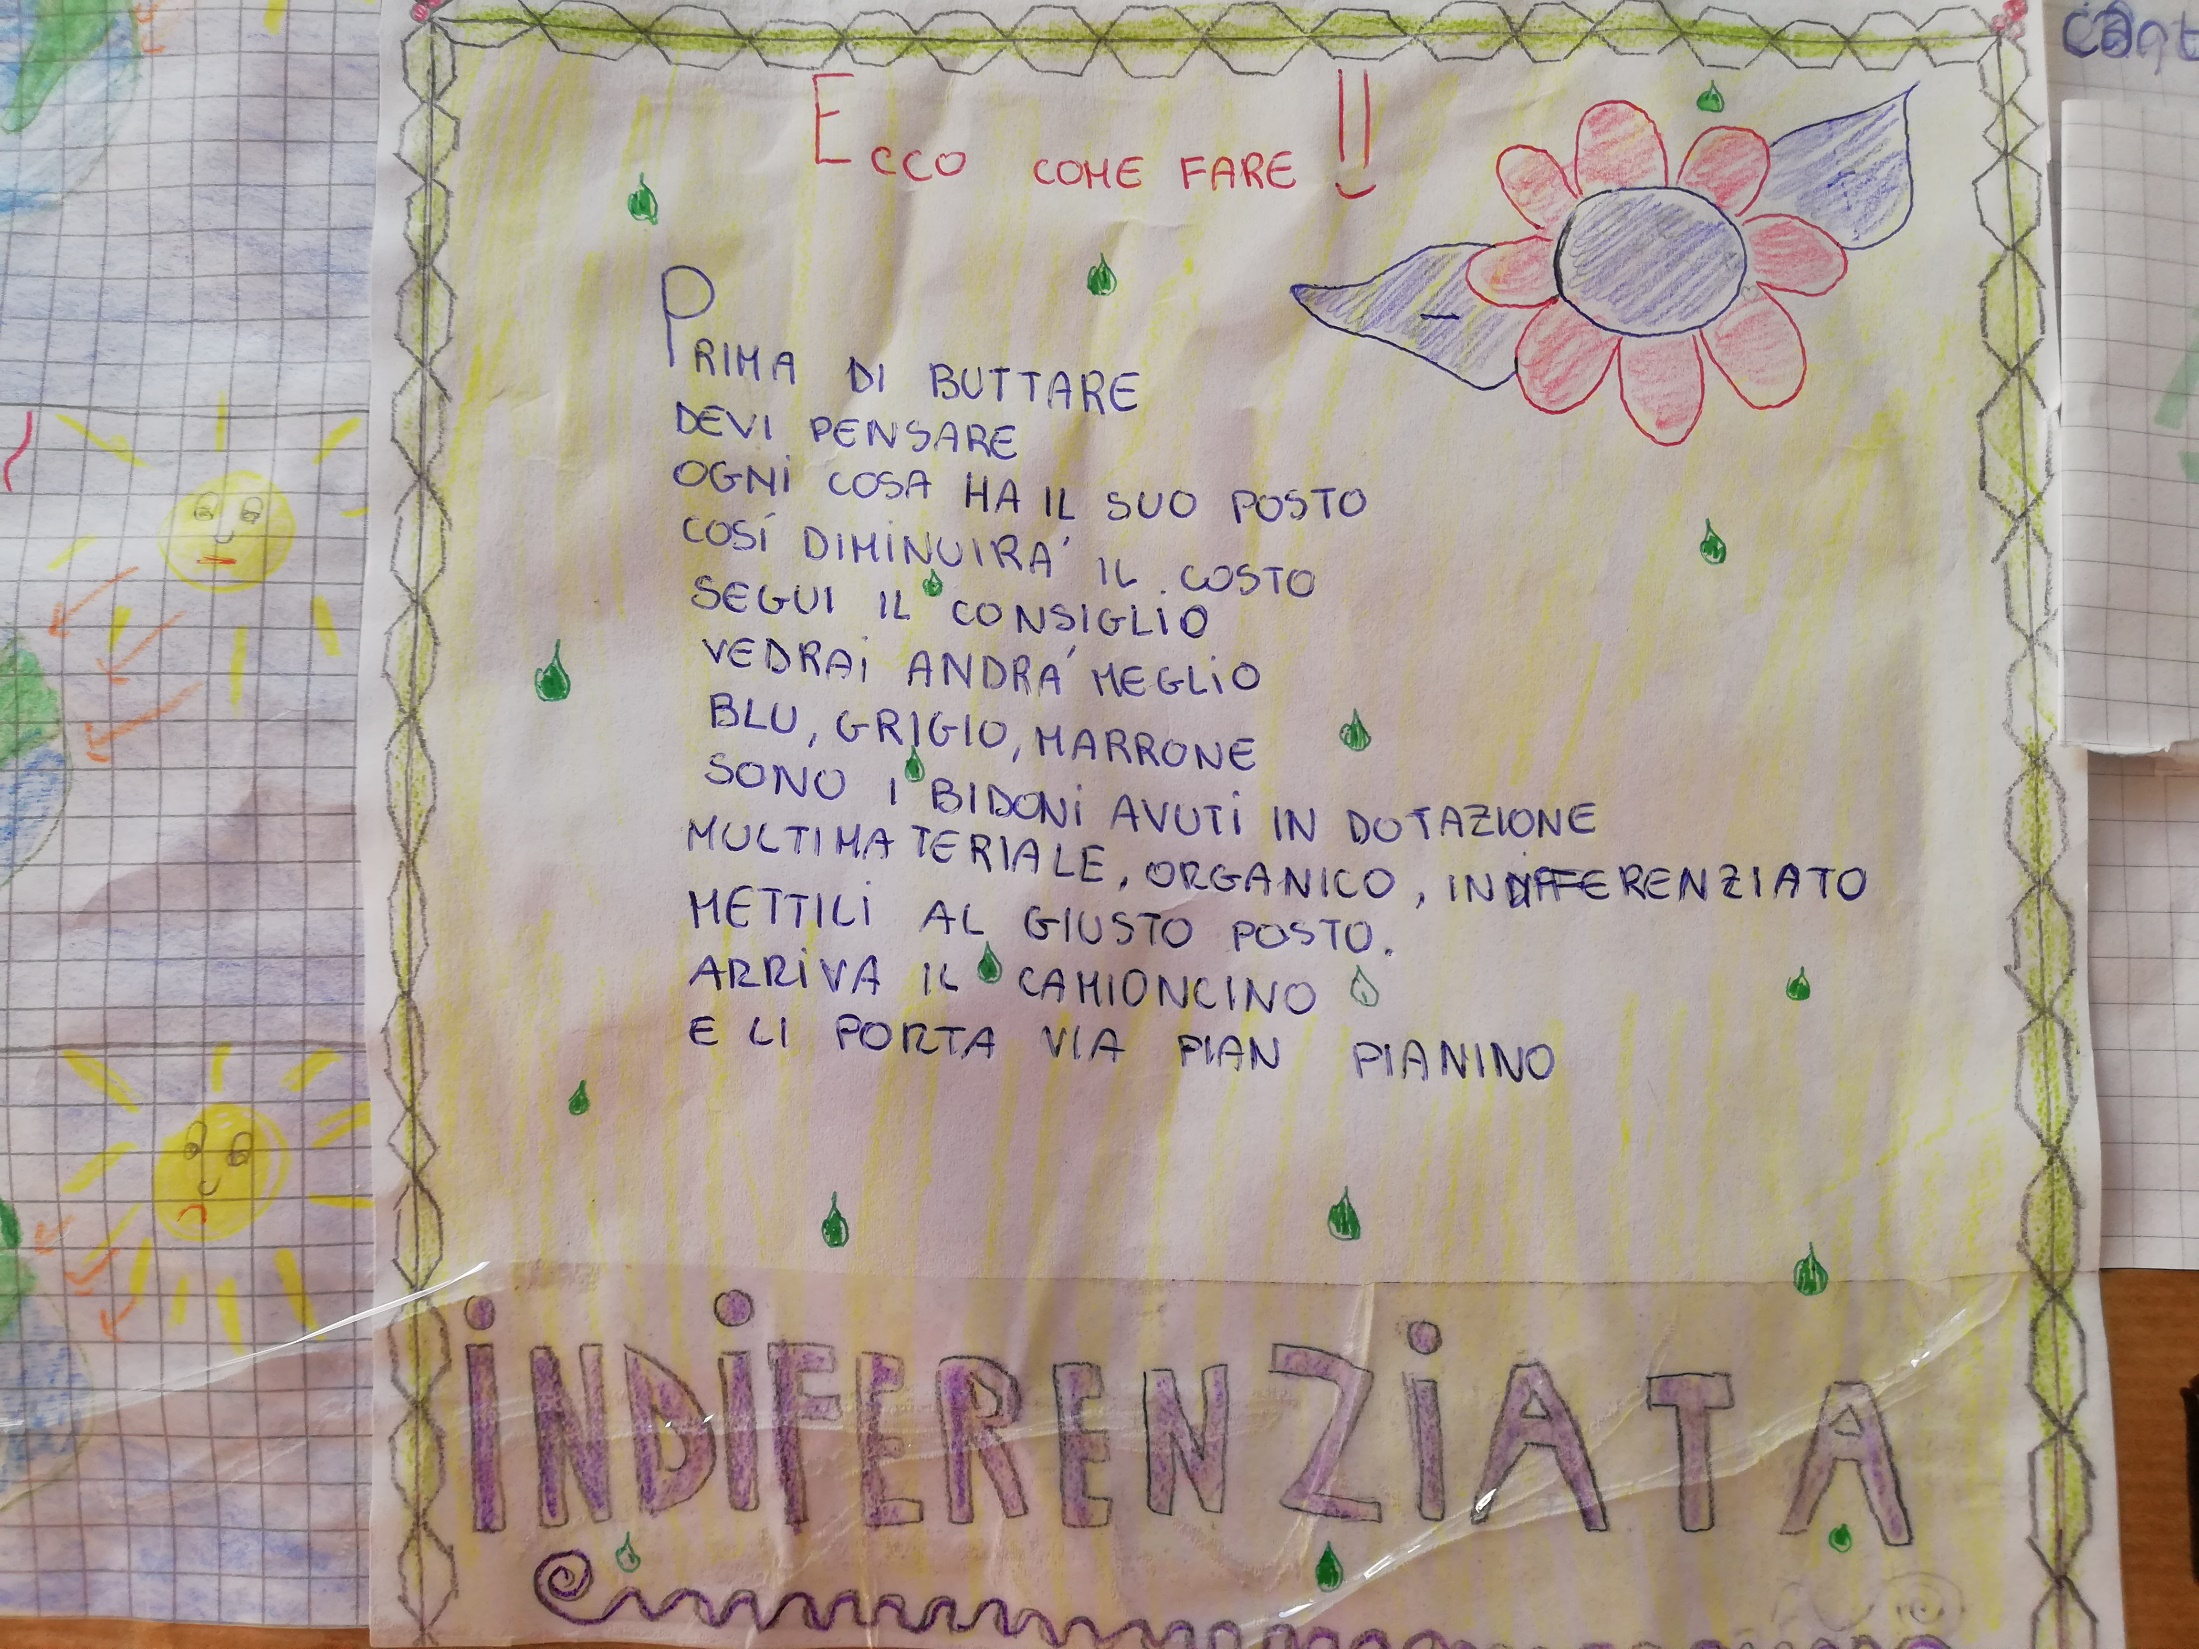 ECCO COME FARE !!
PRIMA DI BUTTARE
DEVI PENSARE
OGNI COSA HA IL SUO POSTO
COSÍ DIMINUIRA' IL COSTO
SEGUI IL CONSIGLIO
VEDRAI ANDRA' MEGLIO
BLU, GRIGIO, MARRONE
SONO I BIDONI AVUTI IN DOTAZIONE
MULTIMATERIALE, ORGANICO, INDIFFERENZIATO
METTILI AL GIUSTO POSTO.
ARRIVA IL CAMIONCINO
E LI PORTA VIA PIAN PIANINO
INDIFERENZIATA